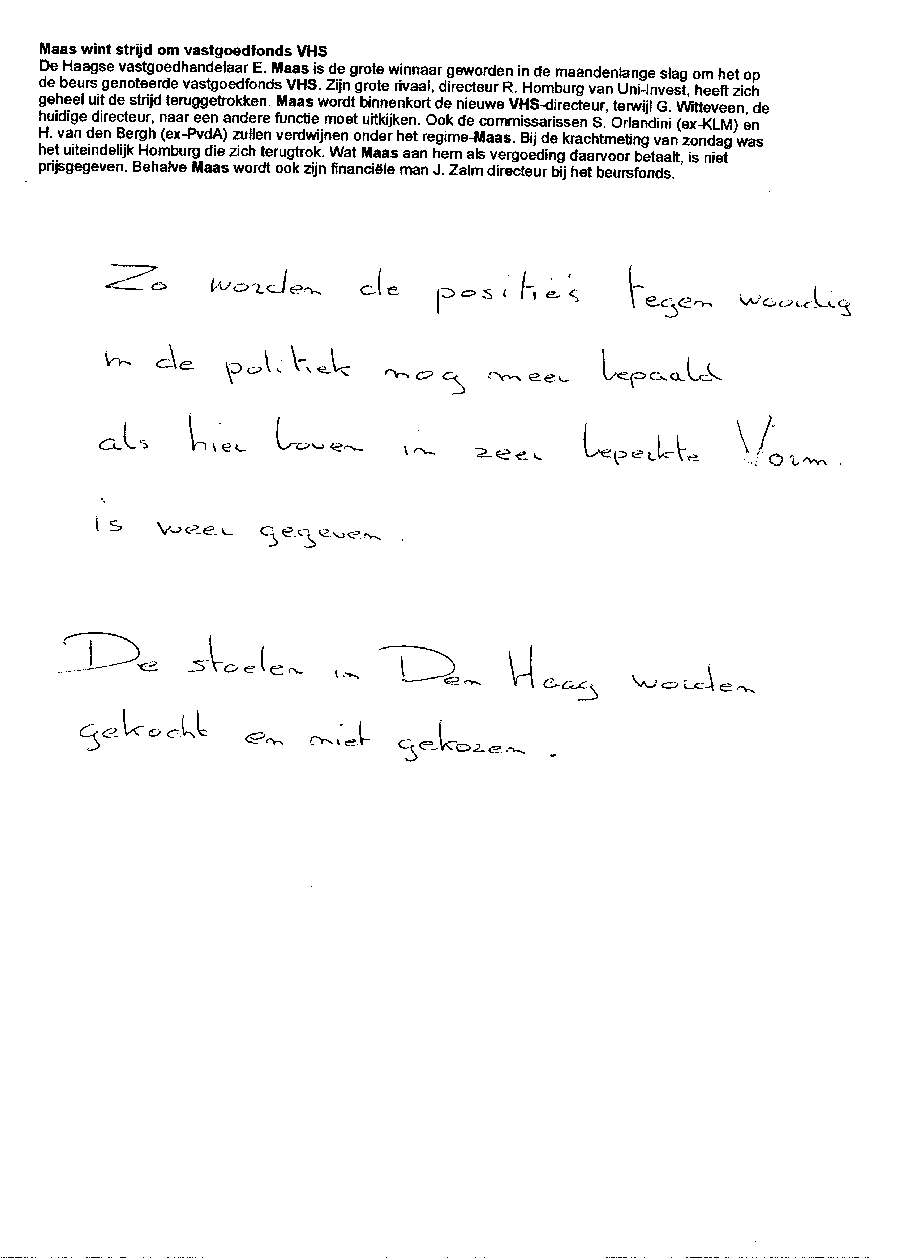 Maas wint strijd om vastgoedfonds VHS
De Haagse vastgoedhandelaar E. Maas is de grote winnaar geworden in de maandenlange slag om het op
de beurs genoteerde vastgoedfonds VHS. Zijn grote rivaal, directeur R. Homburg van Uni-Invest, heeft zich
geheel uit de strijd teruggetrokken. Maas wordt binnenkort de nieuwe VHS-directeur, terwijl G. Witteveen, de
huidige directeur, naar een andere functie moet uitkijken. Ook de commissarissen S. Orlandini (ex-KLM) en
H. van den Bergh (ex-PvdA) zullen verdwijnen onder het regime-Maas. Bij de krachtmeting van zondag was
het uiteindelijk Homburg die zich terugtrok. Wat Maas aan hem als vergoeding daarvoor betaalt, is niet
prijsgegeven. Behalve Maas wordt ook zijn financiële man J. Zalm directeur bij het beursfonds.
Zo worden de positie's tegen woordig
in de politiek nog meer bepaald
als hier boven in zeer beperkte Vorm.
is weer gegeven.
De stoelen in Den Haag worden
gekocht en niet gekozen.